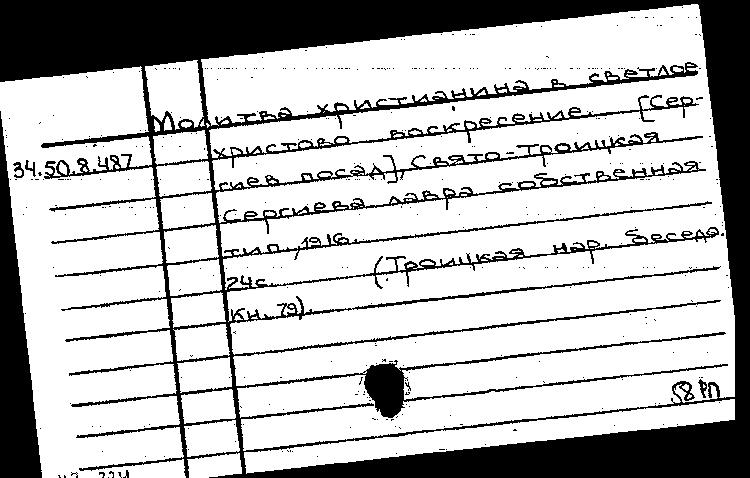 Молитва христианина в светлое
христово воскресение. [Сер-
34.50.8.487
гиев посад], Свято-Троицкая
Сергиева лавра собственная
тип., 1916.
24с. (Троицкая нар. беседа.
Кн. 79).
58 РП